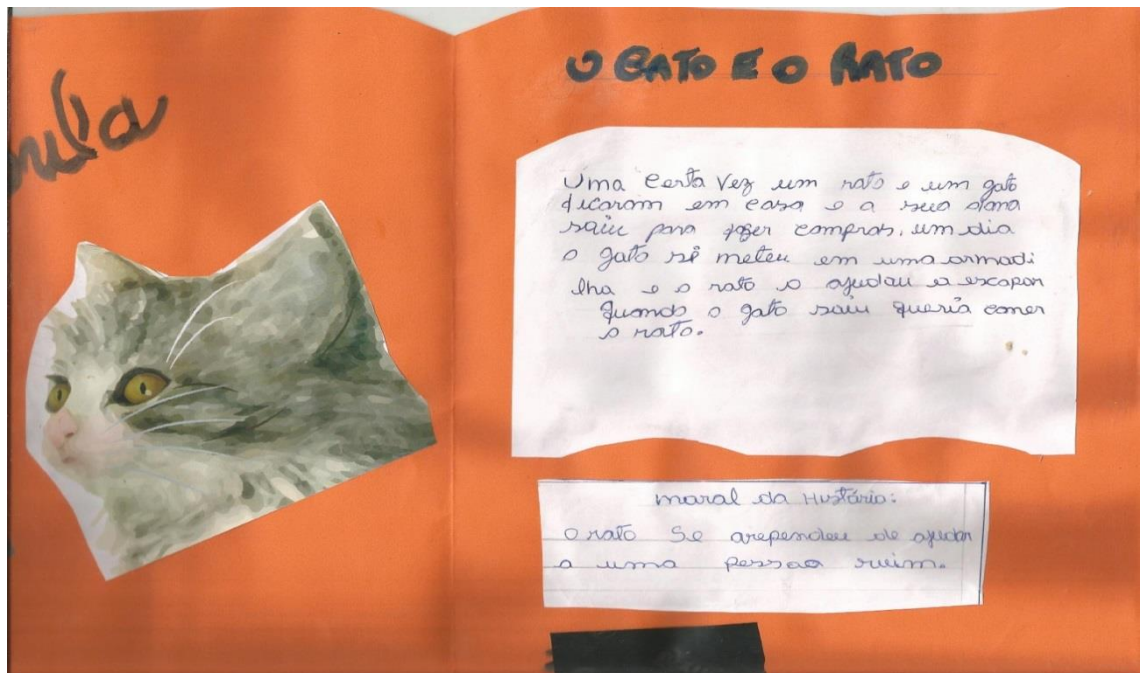 O GATO E O RATO
Uma Certa Vez um rato e um gato
ficaram em casa e a sua dona
saiu para fazer compras, um dia
o gato sê meteu em uma armadi
lha e o rato o ajudau a escapar
Quando o gato saiu queria comer
o rato.
moral da História:
O rato Se arependeu de ajudar
a uma pessoa ruim.